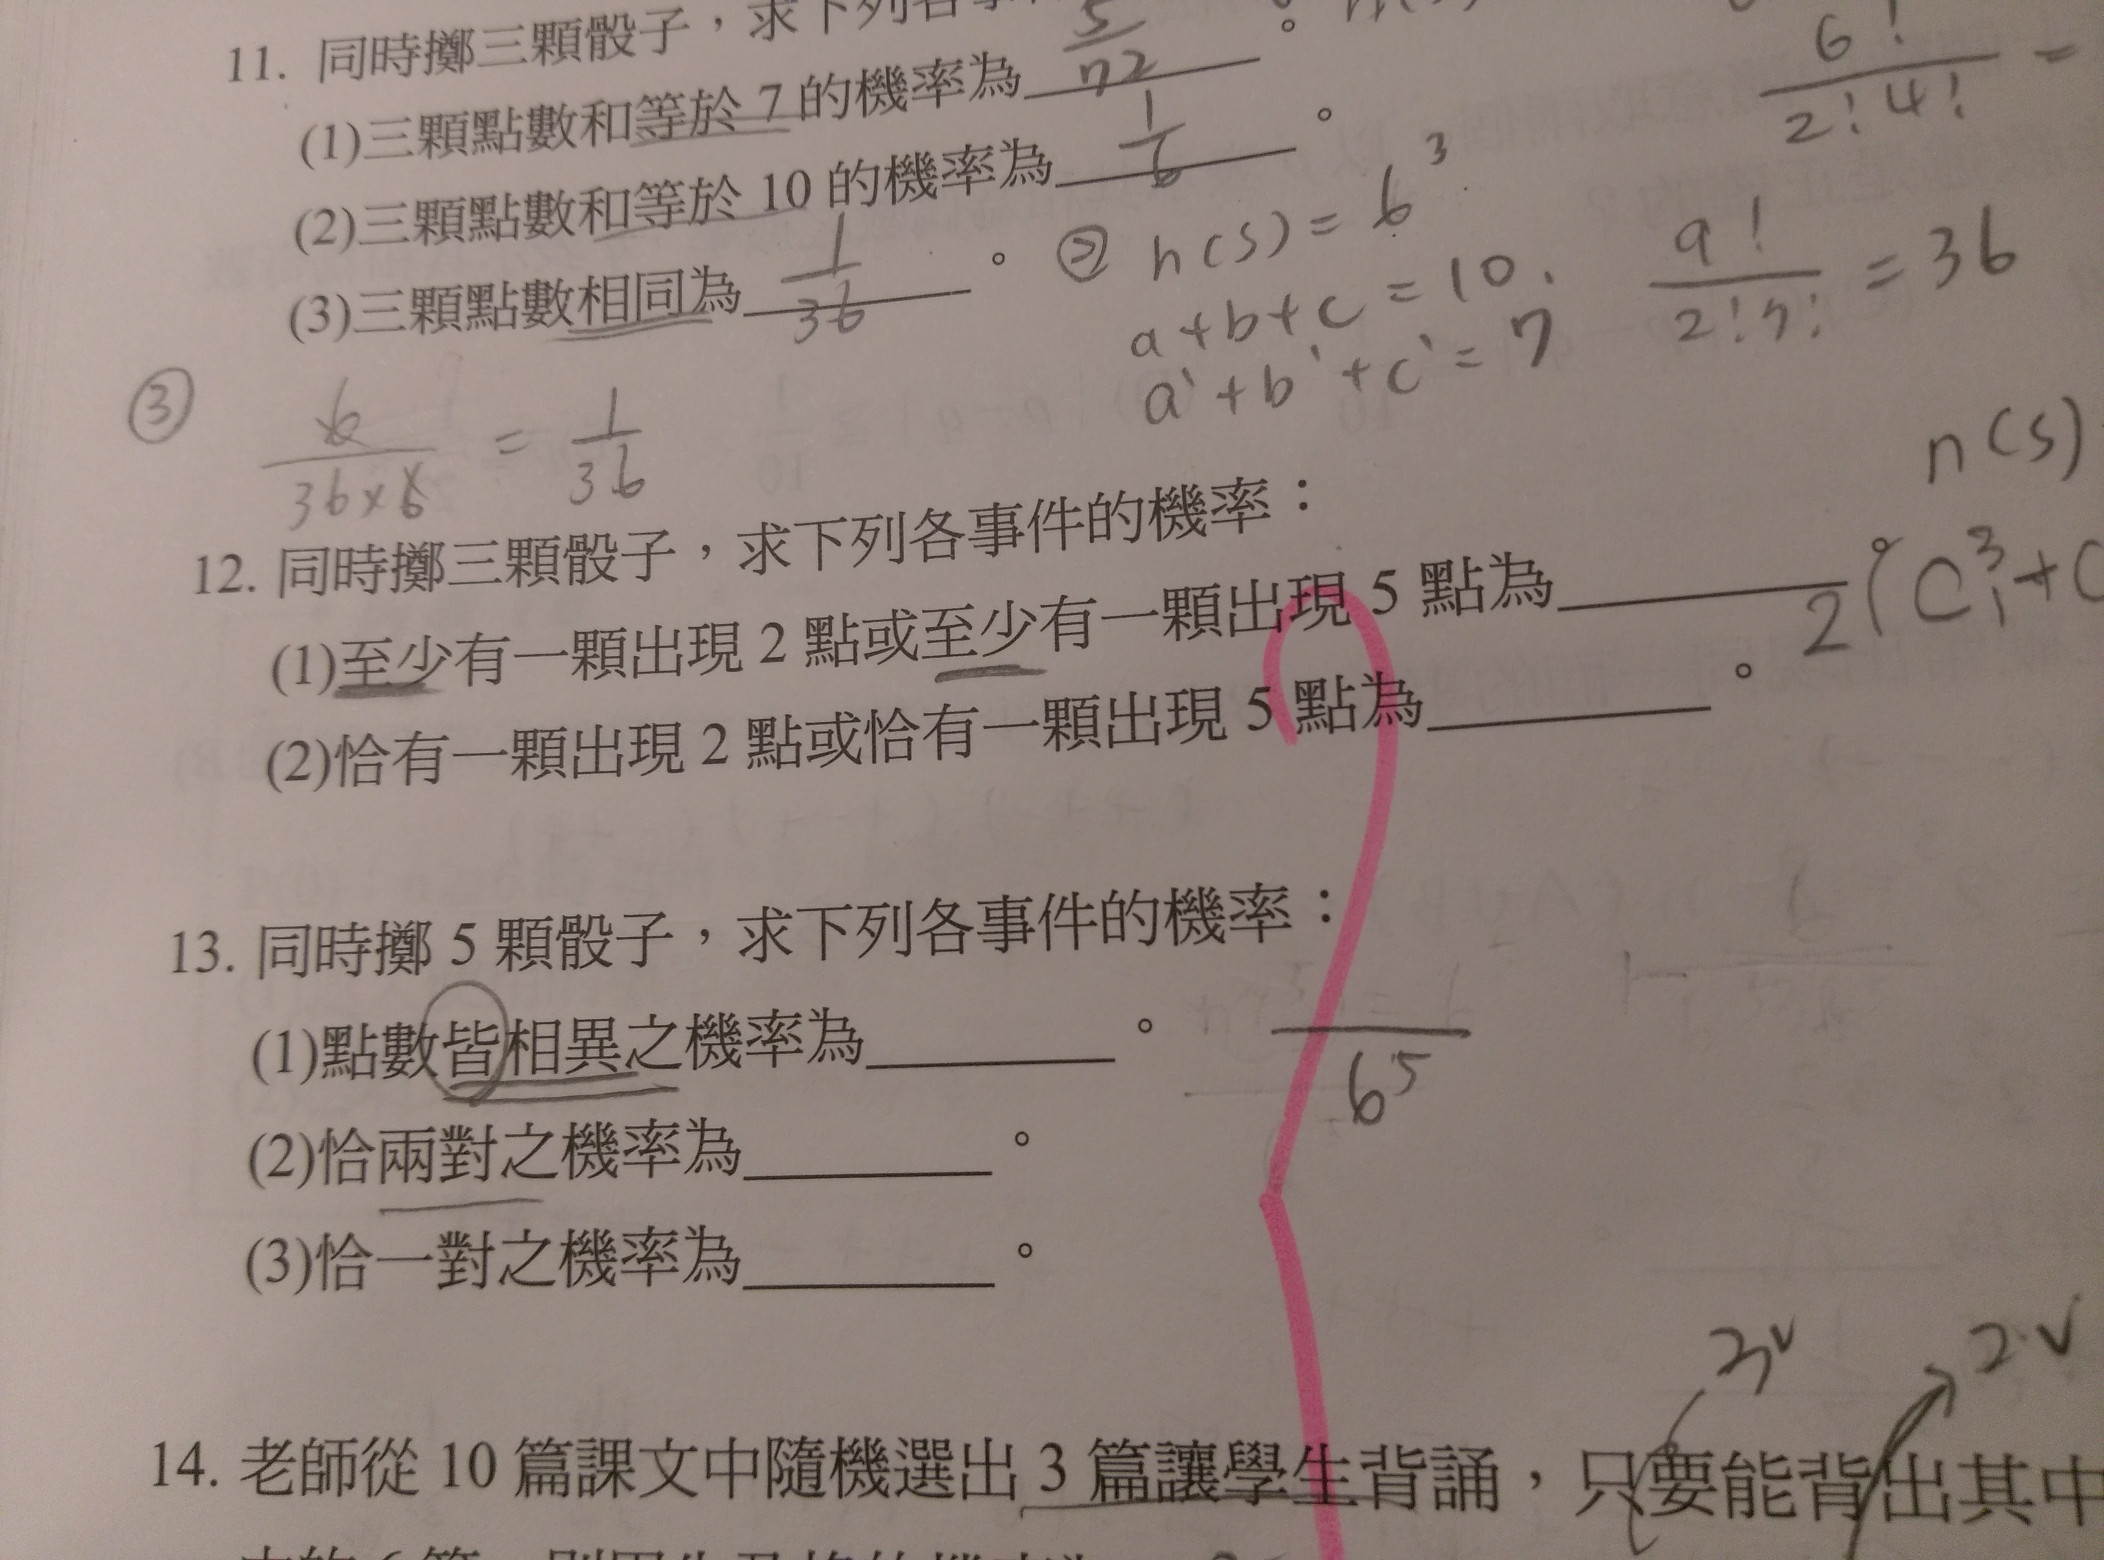 11. 同時擲三顆骰子，求下列各事
(1)三顆點數和等於 7 的機率為 5/72 。
(2)三顆點數和等於 10 的機率為 1/6 。
(3)三顆點數相同為 1/36 。
② n(s) = 6³
a+b+c = 10.
a'+b'+c' = 7
6!/2!4! =
9!/2!7! = 36
③ 6/36×6 = 1/36
n(s)
12. 同時擲三顆骰子，求下列各事件的機率：
(1)至少有一顆出現 2 點或至少有一顆出現 5 點為 。
2(C³₁+C
(2)恰有一顆出現 2 點或恰有一顆出現 5 點為 。
13. 同時擲 5 顆骰子，求下列各事件的機率：
(1)點數皆相異之機率為 。
6⁵
(2)恰兩對之機率為 。
(3)恰一對之機率為 。
3✓ 2✓
14. 老師從 10 篇課文中隨機選出 3 篇讓學生背誦，只要能背出其中